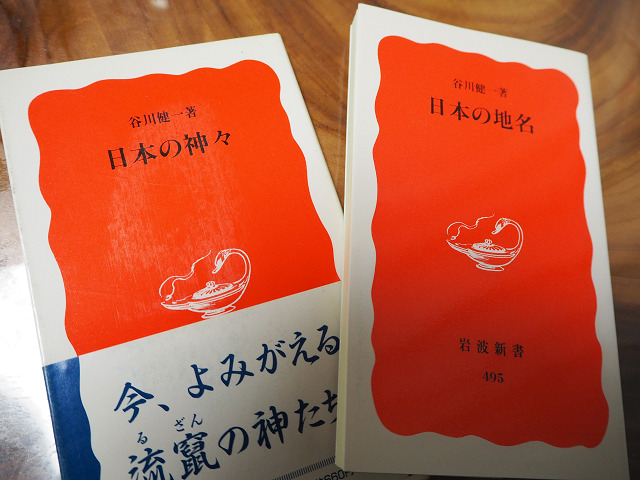 谷川健一著
日本の神々
今、よみがえる
る ざん
流竄の神たち
660円
谷川健一著
日本の地名
岩波新書
495